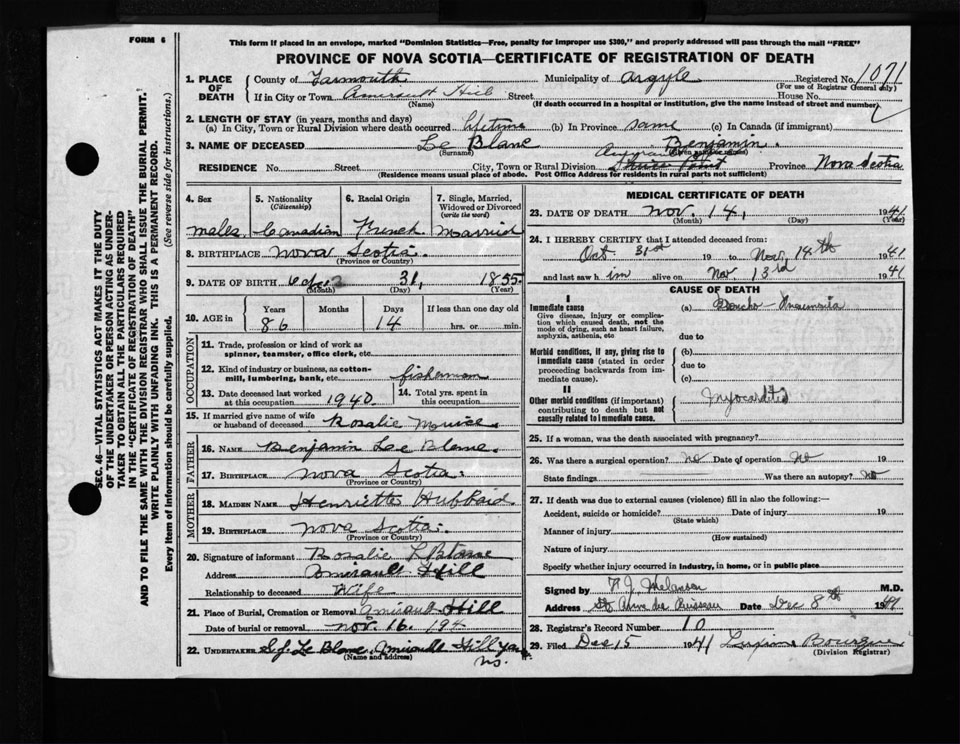 FORM 6
This form if placed in an envelope, marked "Dominion Statistics—Free, penalty for improper use $300," and properly addressed will pass through the mail "FREE"
PROVINCE OF NOVA SCOTIA—CERTIFICATE OF REGISTRATION OF DEATH
SEC. 46—VITAL STATISTICS ACT MAKES IT THE DUTY
OF THE UNDERTAKER OR PERSON ACTING AS UNDER-
TAKER TO OBTAIN ALL THE PARTICULARS REQUIRED
IN THE "CERTIFICATE OF REGISTRATION OF DEATH"
AND TO FILE THE SAME WITH THE DIVISION REGISTRAR WHO SHALL ISSUE THE BURIAL PERMIT.
WRITE PLAINLY WITH UNFADING INK. THIS IS A PERMANENT RECORD.
Every item of information should be carefully supplied. (See reverse side for instructions.)
1. PLACE OF DEATH County of Yarmouth Municipality of Argyle Registered No. 1071
(For use of Registrar General only)
If in City or Town Amirault Hill Street House No.
(Name) (If death occurred in a hospital or institution, give the name instead of street and number)
2. LENGTH OF STAY (in years, months and days)
(a) In City, Town or Rural Division where death occurred Lifetime (b) In Province same (c) In Canada (if immigrant)
3. NAME OF DECEASED Le Blanc Benjamin.
(Surname)
RESIDENCE No. Street City, Town or Rural Division Province Nova Scotia
(Residence means usual place of abode. Post Office Address for residents in rural parts not sufficient)
4. Sex
males
5. Nationality
(Citizenship)
Canadian
6. Racial Origin
French
7. Single, Married, Widowed or Divorced
(write the word)
Married
8. BIRTHPLACE Nova Scotia.
(Province or Country)
9. DATE OF BIRTH 31, 1855.
(Month) (Day) (Year)
10. AGE in Years Months Days If less than one day old
86 14 hrs. or min.
OCCUPATION
11. Trade, profession or kind of work as
spinner, teamster, office clerk, etc.
12. Kind of industry or business, as cotton-
mill, lumbering, bank, etc. fisherman
13. Date deceased last worked
at this occupation 1940.
14. Total yrs. spent in
this occupation
15. If married give name of wife
or husband of deceased Rosalie
FATHER
16. NAME Benjamin Le Blanc.
17. BIRTHPLACE Nova Scotia.
(Province or Country)
MOTHER
18. MAIDEN NAME Henriette Hubbard
19. BIRTHPLACE Nova Scotia.
(Province or Country)
20. Signature of informant Rosalie L Blanc
Address Amirault Hill
Relationship to deceased Wife
21. Place of Burial, Cremation or Removal Amirault Hill
Date of burial or removal Nov. 16. 194
22. UNDERTAKER S.J. Le Blanc, Amirault Hill Yar.
(Name and address) NS.
MEDICAL CERTIFICATE OF DEATH
23. DATE OF DEATH Nov. 14, 1941
(Month) (Day) (Year)
24. I HEREBY CERTIFY that I attended deceased from:
Oct 31st 19 to Nov. 14th 1941
and last saw him alive on Nov. 13rd 1941
CAUSE OF DEATH
I
Immediate cause
Give disease, injury or complica-
tion which caused death, not the
mode of dying, such as heart failure,
asphyxia, asthenia, etc
(a) Broncho-Pneumonia
due to
Morbid conditions, if any, giving rise to
immediate cause (stated in order
proceeding backwards from im-
mediate cause).
(b)
due to
(c)
II
Other morbid conditions (if important)
contributing to death but not
causally related to immediate cause.
Myocarditis
25. If a woman, was the death associated with pregnancy?
26. Was there a surgical operation? no Date of operation no 19
State findings Was there an autopsy? no
27. If death was due to external causes (violence) fill in also the following:
Accident, suicide or homicide? Date of injury 19
(State which)
Manner of injury
(How sustained)
Nature of injury
Specify whether injury occurred in Industry, in home, or in public place
Signed by Melanson M.D.
Address Ste Anne du Ruisseau Date Dec 8th 1941
28. Registrar's Record Number 10
29. Filed Dec 15 1941 Bourque
(Division Registrar)